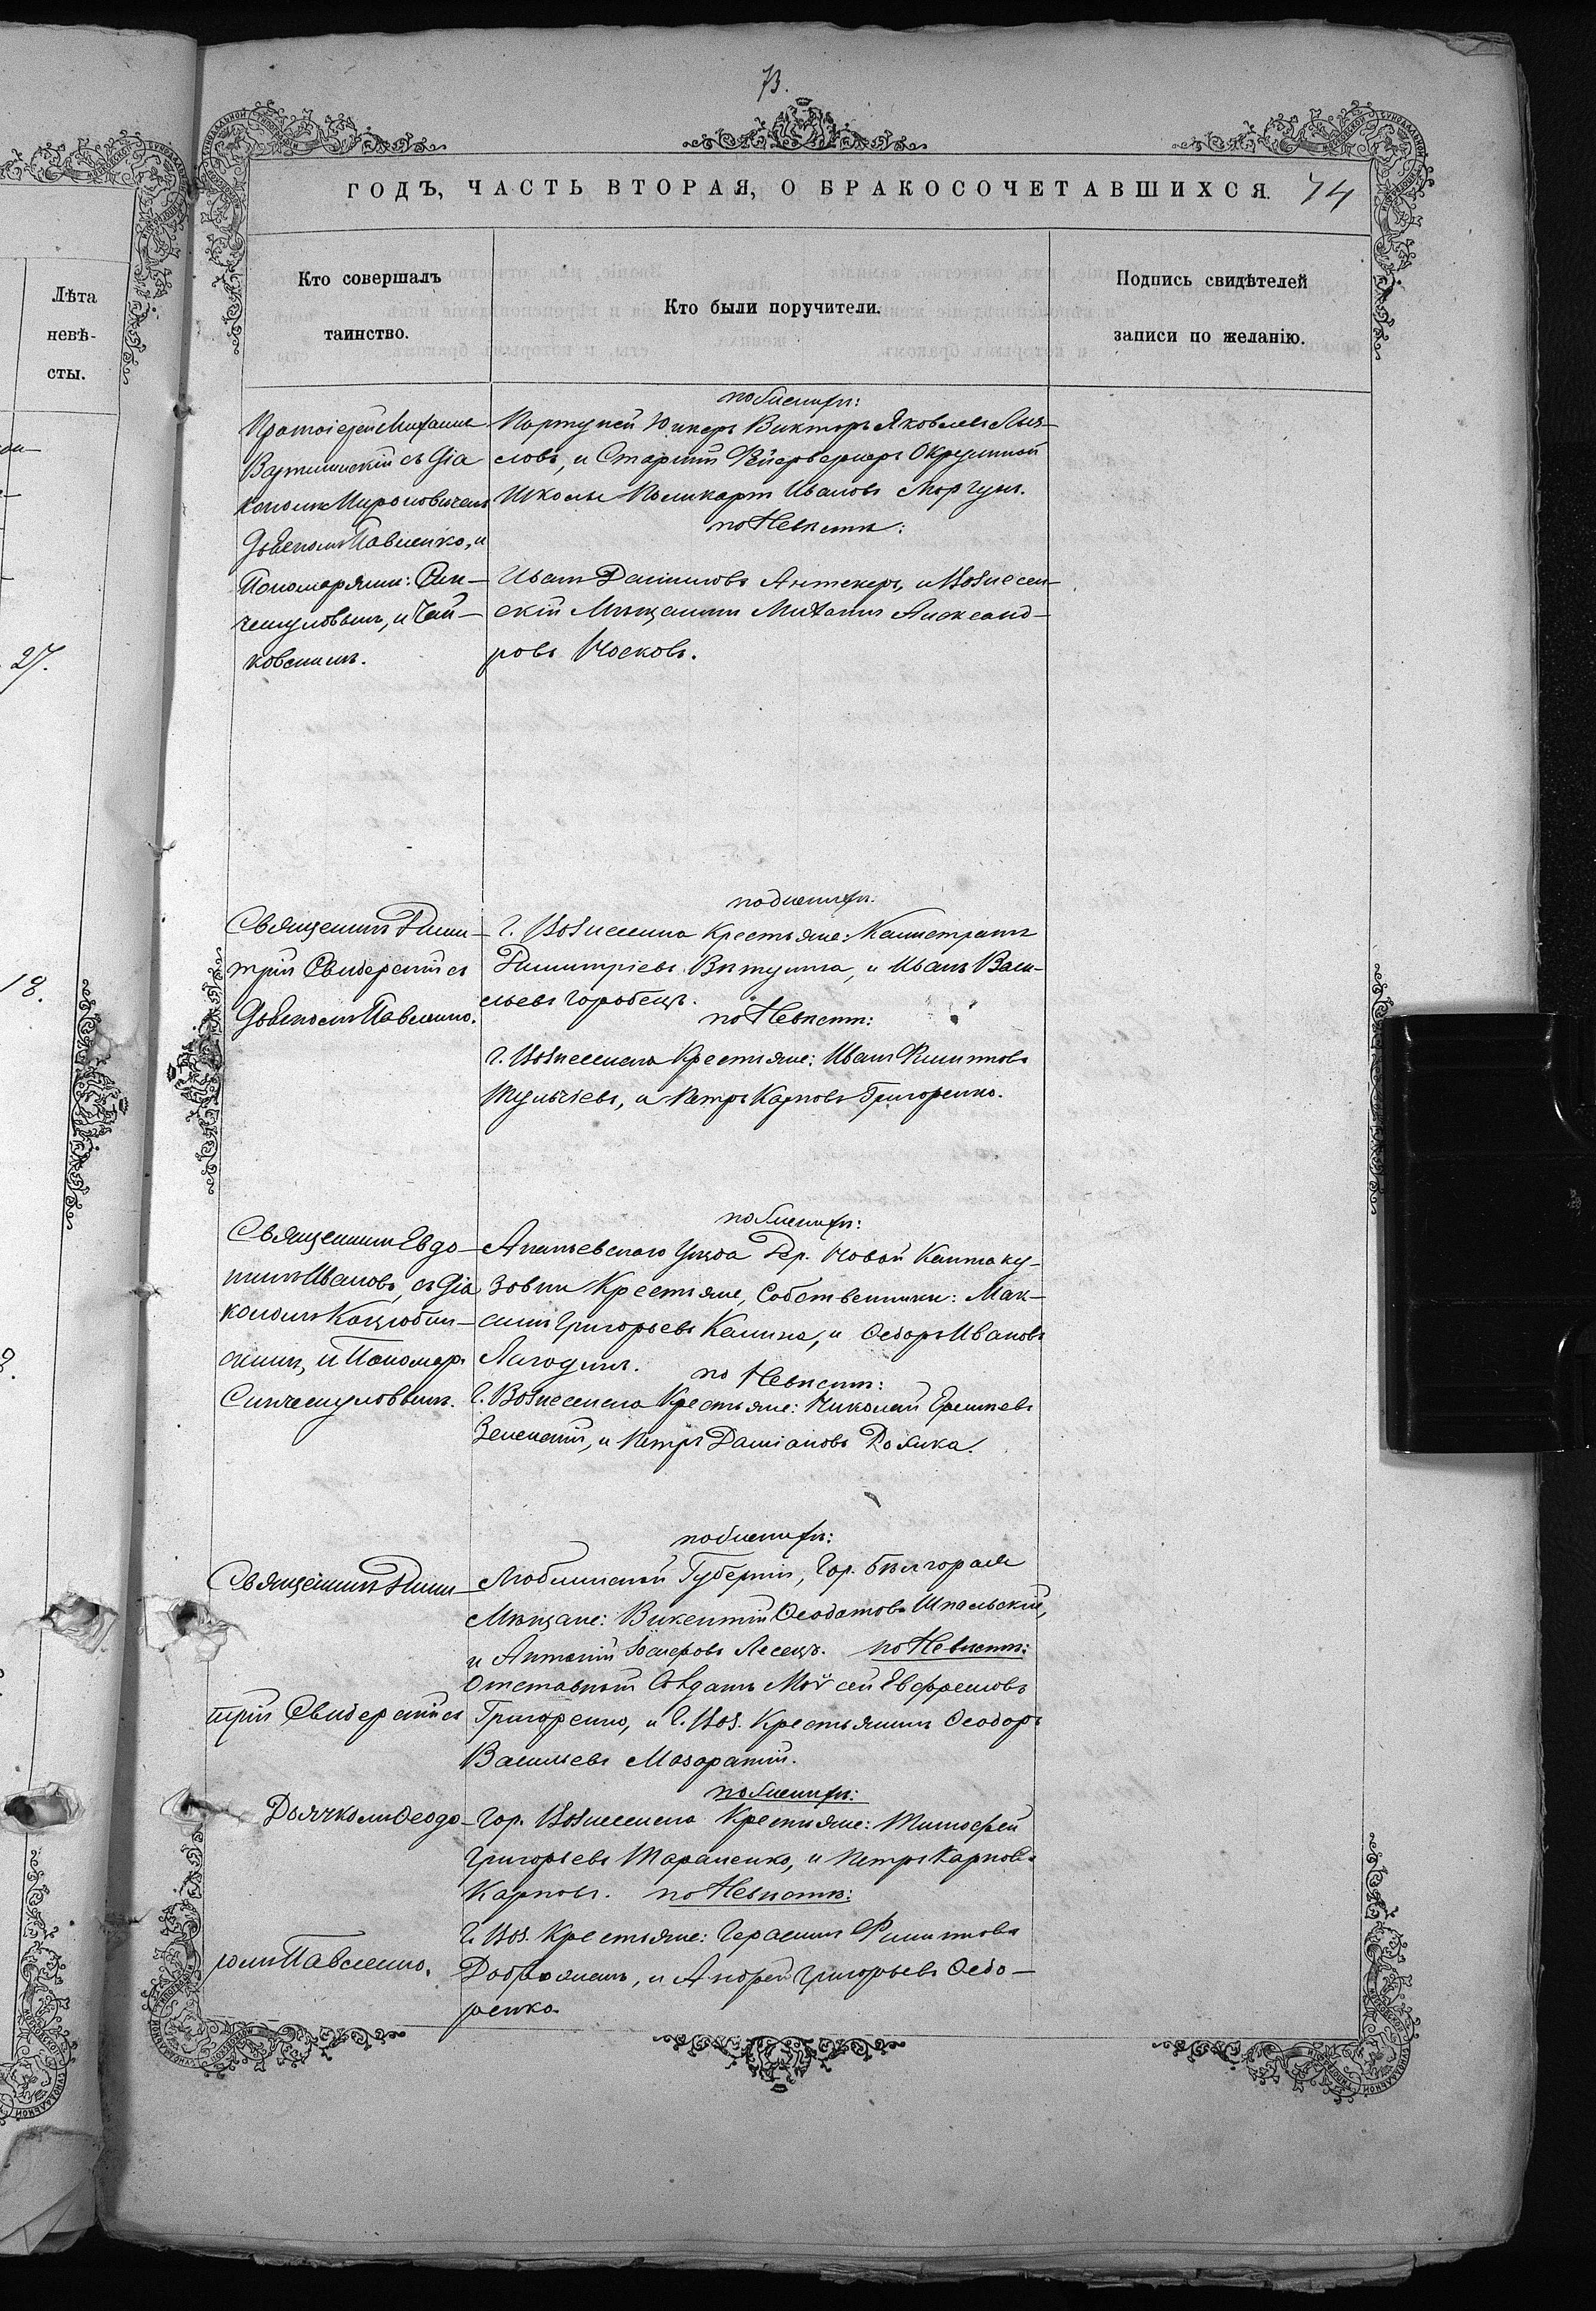 73.
ГОДЪ, ЧАСТЬ ВТОРАЯ, О БРАКОСОЧЕТАВШИХСЯ. 74
Лѣта
невѣ-
сты.
27.
18.
Кто совершалъ
таинство.
Кто были поручители.
Подпись свидѣтелей
записи по желанію.
Протоіерей Михаилъ
съ Діа
кономъ Мироновичемъ
Дьячкомъ Павленко, и
Пономарями: Син-
чешуловымъ, и Чай-
ковскимъ.
по женихѣ:
Портупей Юнкеръ Викторъ Яковлевъ
словъ, и Старшій Фейерверкеръ Окружной
Школы Поликарпъ Ивановъ Моргунъ.
по Невѣстѣ:
Иванъ Даниловъ Аптекеръ, и Вознесен-
скій Мѣщанинъ Михаилъ Александ-
ровъ Носковъ.
Священникъ Дими-
трій Свидерскій съ
Дьячкомъ Павленко.
по женихѣ:
Г. Вознесенска Крестьяне: Калистратъ
Димитріевъ и Иванъ Васи-
льевъ Горобецъ.
по Невѣстѣ:
г. Вознесенска Крестьяне: Иванъ Филиповъ
Тульчіевъ, и Петръ Карповъ Григоренко.
Священникъ Евдо-
кимъ Ивановъ, съ Діа
кономъ Коцюбин-
скимъ, и Пономар.
Синчешуловымъ.
по женихѣ:
Ананьевскаго Уѣзда Дер. Новой Кантаку-
зовки Крестьяне, Собственники: Мак-
симъ Григорьевъ Калина, и Ѳедоръ Ивановъ
Лагодинъ.
по Невѣстѣ:
Г. Вознесенска Крестьяне: Николай
Зеленскій, и Петръ Даміановъ
Священникъ Дими-
трій Свидерскій съ
Дьячкомъ Ѳеодо-
ромъ Павленко.
по женихѣ:
Люблинской Губерніи, Гор. Бѣлгорая
Мѣщане: Викентій Ѳеодотовъ Шпальскій,
и Антоній Лесецъ. по Невѣстѣ:
Отставный Солдатъ Моѵсей Евфремовъ
Григоренко, и Г. Воз. Крестьянинъ Ѳеодоръ
Васильевъ Мозоратій.
по женихѣ:
Гор. Вознесенска Крестьяне: Тимофей
Григорьевъ Тараненко, и Петръ Карповъ
Карповъ. по Невѣстѣ:
Г. Воз. Крестьяне: Герасимъ Филиповъ
и Андрей Григорьевъ Ѳедо-
ренко.